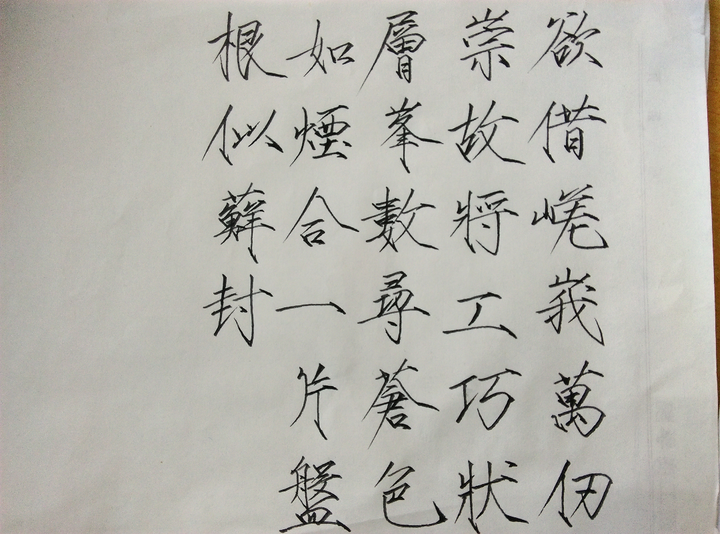 欲借嵯峩萬仞
崇故將工巧狀
層峯數尋蒼色
如煙合一片盤
根似蘚封